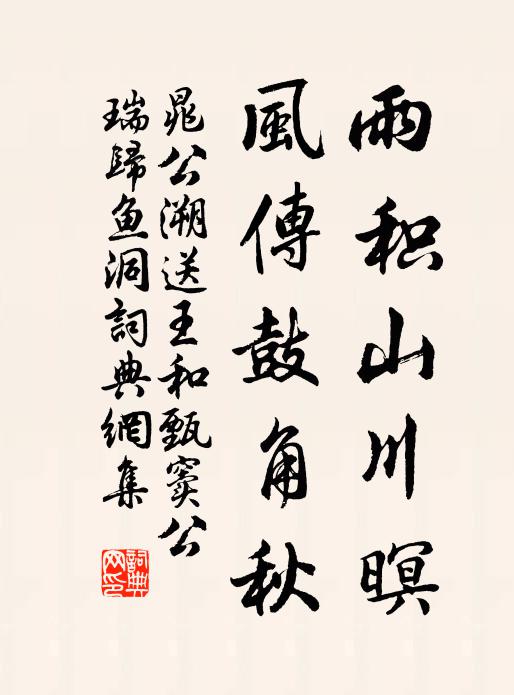 雨积山川暝
風傳鼓角秋
晁公溯送王和甄窦公
瑞歸鱼洞詞典網集
詞典
网印